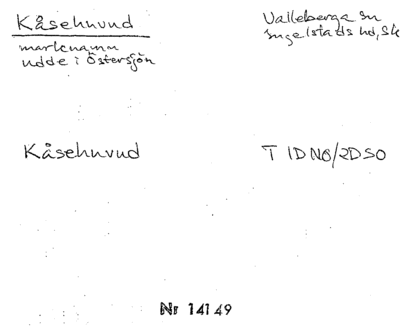 Kåsehuvud
Valleberga sn
marknamn
Ingelstads hd, Sk
udde i Östersjön
Kåsehuvud
T 1D NO/2D SO
Nr 14149